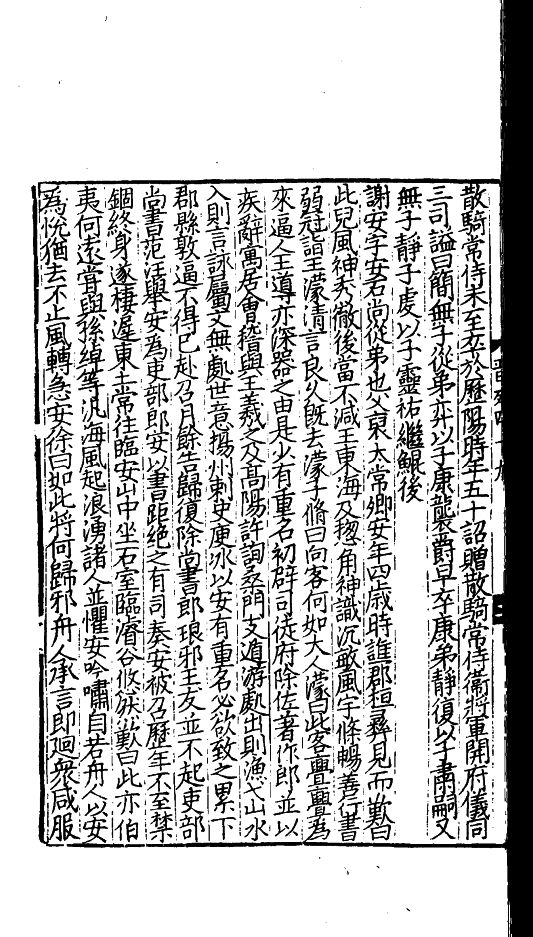 散騎常侍未至卒於歷陽時年五十詔贈散騎常侍衞將軍開府儀同
三司諡曰簡無子從弟弈以子康襲爵早卒康弟靜復以子肅嗣又
無子靜子虔以子靈祐繼鯤後
謝安字安石尚從弟也父裒太常卿安年四歲時譙郡桓彝見而歎曰
此兒風神秀徹後當不減王東海及揔角神識沉敏風宇條暢善行書
弱冠詣王濛清言良久旣去濛子脩曰向客何如大人濛曰此客亹亹爲
來逼人王導亦深器之由是少有重名初辟司徒府除佐著作郎並以
疾辭寓居會稽與王羲之及高陽許詢桑門支遁游處出則漁弋山水
入則言詠屬文無處世意揚州刺史庾冰以安有重名必欲致之累下
郡縣敦逼不得已赴召月餘告歸復除尚書郎琅邪王友並不起吏部
尚書范汪舉安爲吏部郎安以書距絕之有司奏安被召歷年不至禁
錮終身遂棲遲東土常往臨安山中坐石室臨濬谷悠然歎曰此亦伯
夷何遠嘗與孫綽等汎海風起浪湧諸人並懼安吟嘯自若舟人以安
爲悅猶去不止風轉急安徐曰如此將何歸邪舟人承言即迴衆咸服